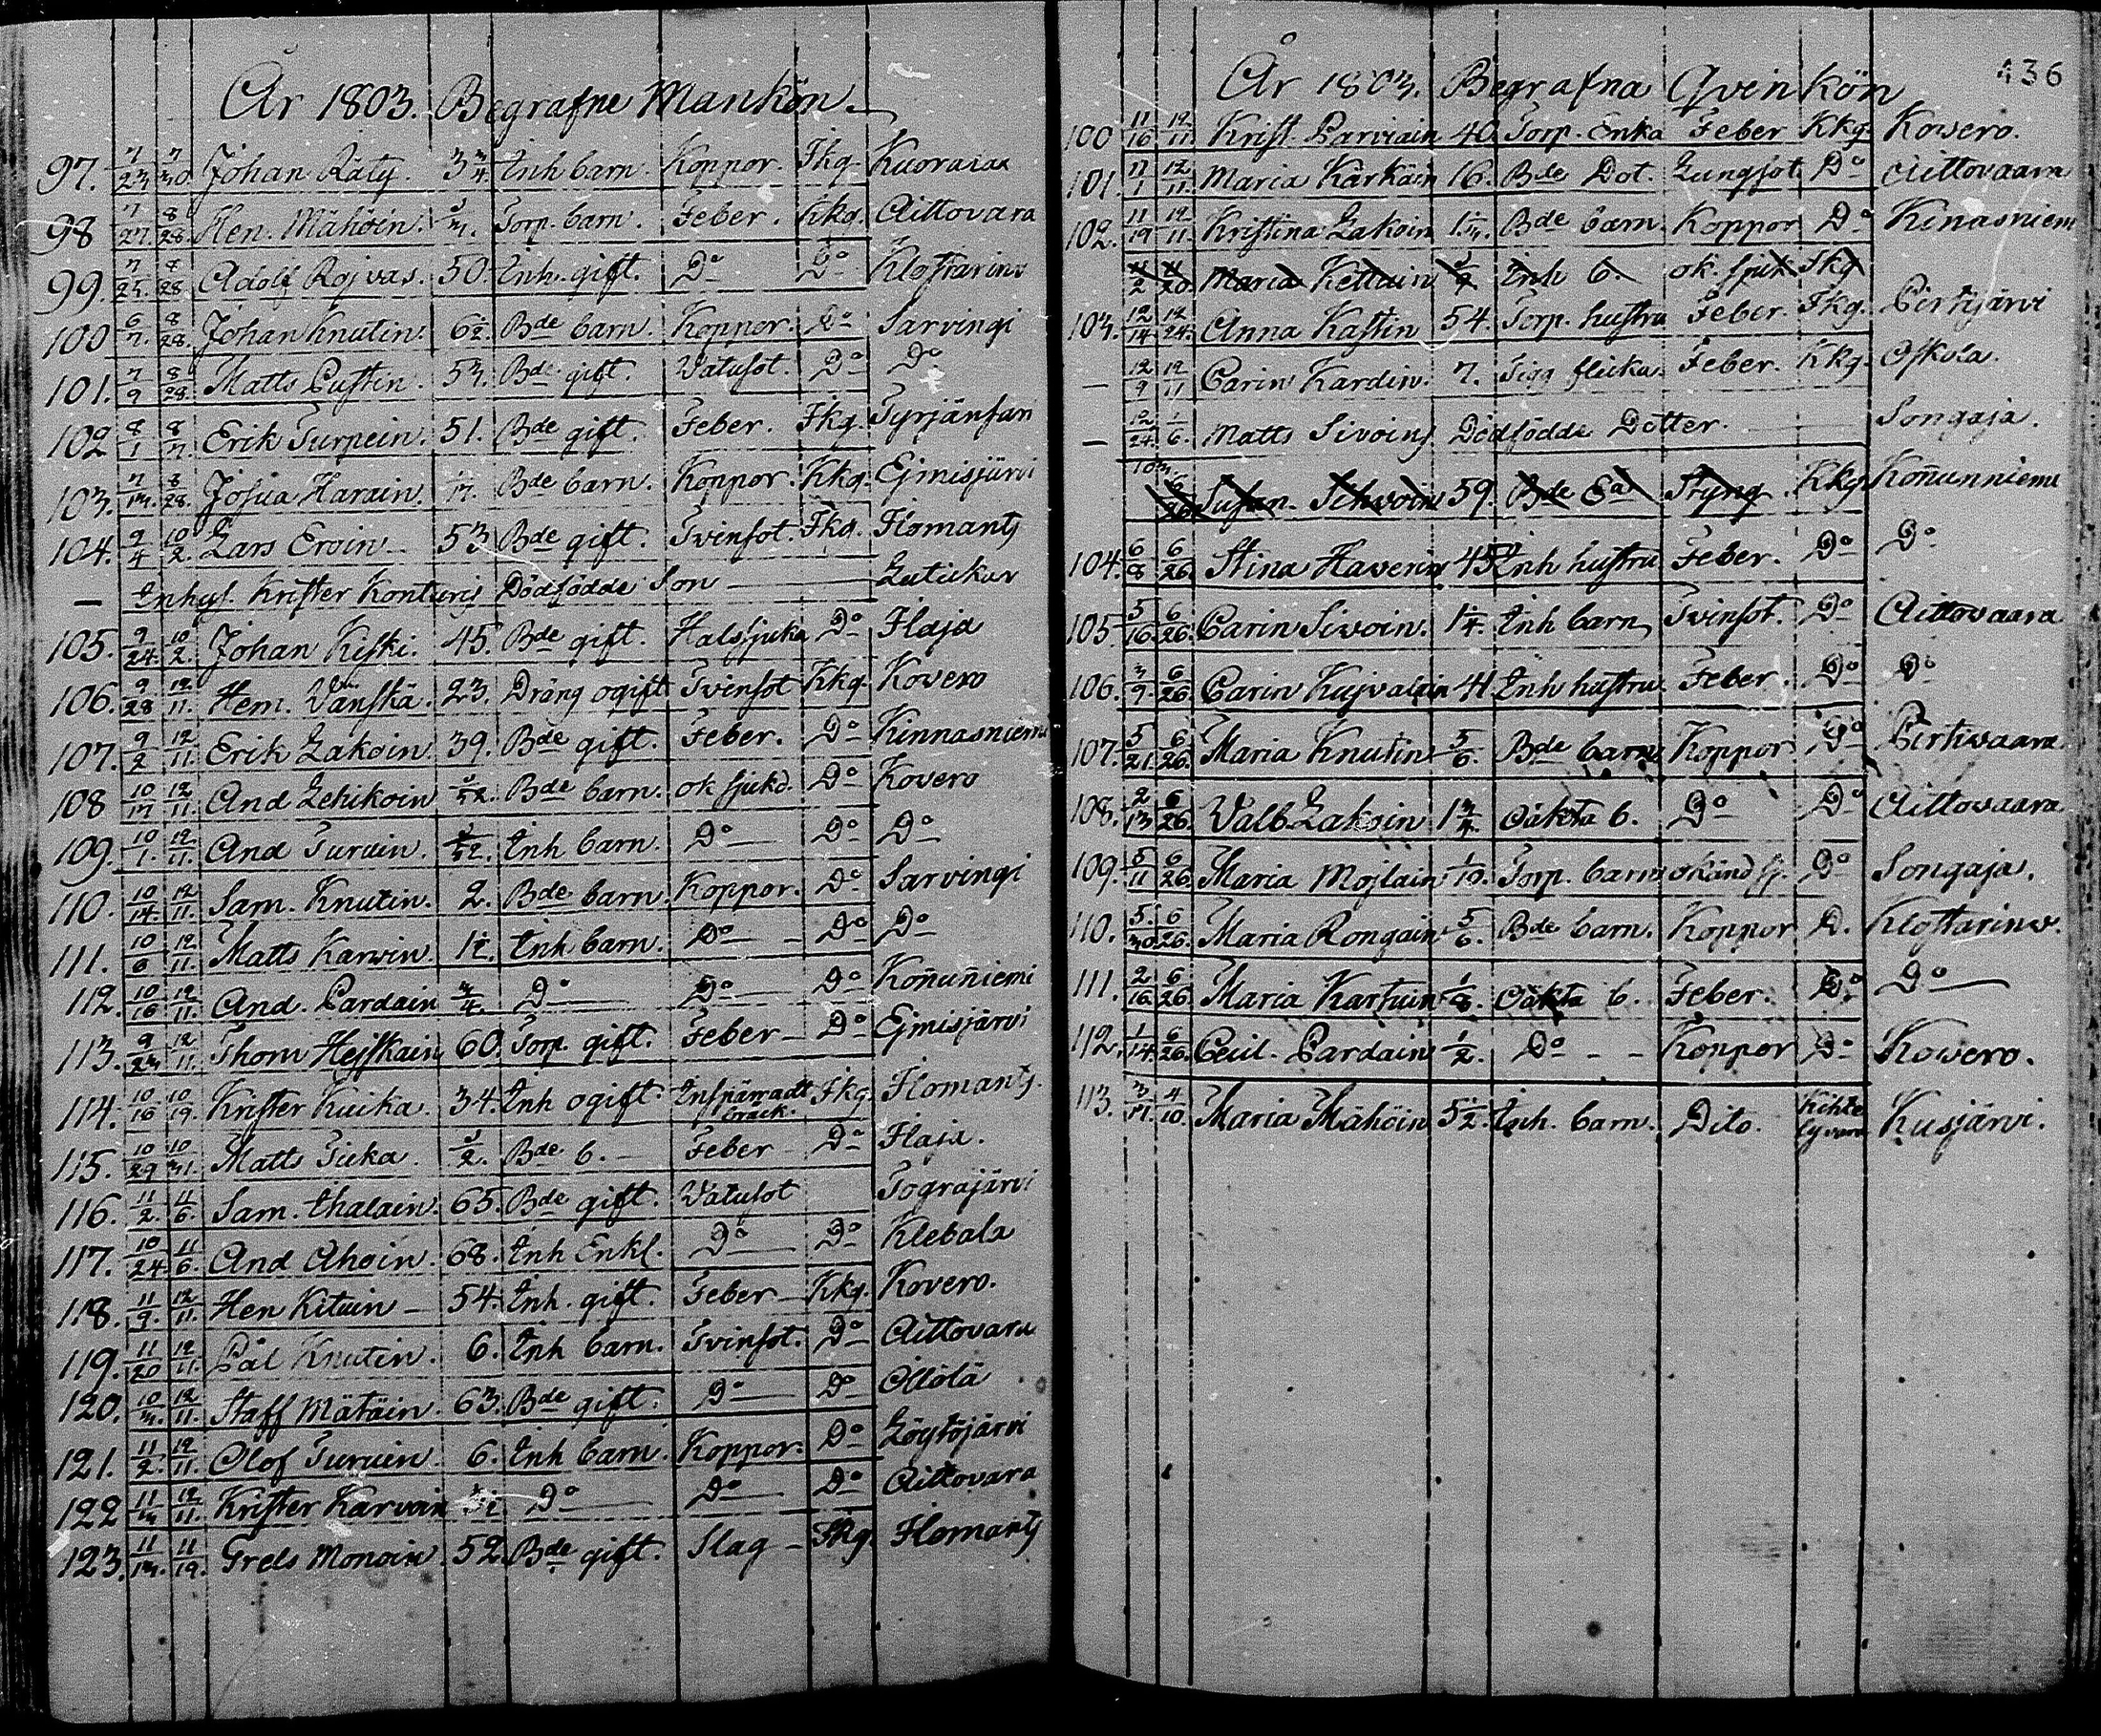 År 1803. Begrafne Mankön.
97. 7/23 7/30 Johan Räty. 3 3/4 Inh barn. Koppor. Ikg. Kuoraiaa
98 7/27 8/28 Hen. Mähöin. Torp. barn. Feber. Kkg. Aittovara
99. 7/25. 8/28 Adolf Rojvas. 50. Inh. gift. Do Do Klostarinv
100 6/7. 8/28. Johan Knutin. 6 1/2. Bde barn. Koppor. Do Sarvingi
101. 7/9 8/28. Matts Pustin. 53. Bde gift. Vatusot. Do Do
102 8/1 8/7. Erik Turpein. 51. Bde gift. Feber. Ikg. Tyrjänsari
103. 7/13. 8/28. Josua Harain. Bde barn. Koppor. Kkg. Ejmisjärvi
104. 9/4 10/2. Lars Eroin 53 Bde gift. Tvinsot. Ikg. Ilomants
— Inhys Krister Konturis Dödfödde Son — Lutickav
105. 9/24. 10/2. Johan Kiski. 45. Bde gift. Halssjuka Do Ilaja
106. 9/28 12/11. Hem. Vänskä. 23. Dräng ogift Tvinsot Kkg. Kovero
107. 9/2 12/11. Erik Lakoin. 39. Bde gift. Feber. Do Kinnasniemi
108 10/17 12/11. And Lehikoin /52. Bde barn. ok sjukd. Do Kovero
109. 10/1. 12/11. And Turuin. /52. Inh barn. Do Do Do
110. 10/14. 12/11. Sam. Knutin. 2. Bde barn. Koppor. Do Sarvingi
111. 10/6 12/11. Matts Karvin. 1 1/2. Inh barn. Do Do Do
112. 10/16 12/11. And. Pardain 3/4. Do Do Do Koñuñiemi
113. 9/23 12/11. Thom Hejskain 60. Torp. gift. Feber Do Ejmisjärvi
114. 10/16 10/19. Krister Kuika. 34. Inh ogift. Inspärradt brack. Ikg. Ilomants.
115. 10/29 10/31. Matts Ticka. 1/2. Bde b. Feber Do Ilaja.
116. 11/2. 11/6. Sam. Ihalain. 65. Bde gift. Vatusot Tograjärvi
117. 10/24 11/6. And Ahoin. 68. Inh Enkl. Do Do Klebala
118. 11/9. 12/11. Hen Kituin – 54. Inh. gift. Feber Kkg. Kovero.
119. 11/20 12/11. Pål Knutin. 6. Inh barn. Tvinsot. Do Aittovara
120. 10/31. 12/11. Staff Mätäin. 63. Bde gift. Do Do Ollola
121. 11/2. 12/11. Olof Turuin. 6. Inh barn. Koppor. Do Löytöjärvi
122 11/3 12/11. Krister Karvoin Do Do Do Aittovara
123. 11/13. 11/19. Grels Monoin. 52 Bde gift. Slag – Ikg. Ilomants
436
År 1803. Begrafna Qvinkön
100 11/16 12/11 Krist. Parviain 40. Torp. Enka Feber Kkg. Kowero.
101. 11/1 12/11. Maria Karkain 16. Bde Dot. Lungsot Do Aittovaara
102. 11/19 12/11. Kristina Lakoin Bde barn. Koppor Do Kinasniemi
11/2 11/20 Maria Kettuin 1/2 Inh b. ok. sjuk Ikg
103. 12/14. 12/24. Anna Kastin 54. Torp. hustru Feber. Ikg. Pirttijärvi
— 12/9 12/11 Carin Kardin. 7. Tigg flicka. Feber. Kkg. Oskola.
— 12/24. 1/6. Matts Sivoins Dödfödde Dotter. Songaja.
103. 6/26 Susan. Sihvoin 59. Bde Ea Styng. Kkg. Koñunniemi
104. 6/8 6/26. Stina Haverin 45 Inh hustru Feber. Do Do
105 5/16. 6/26. Carin Sivoin. 1 1/4. Inh barn Tvinsot. Do Aittovaara
106. 3/9. 6/26. Carin Kujvalain 41 Inh hustru. Feber. Do Do
107. 5/21. 6/26. Maria Knutin 5/6. Bde barn Koppor Do Pirtivaara
108. 2/13 6/26. Valb Lakoin 1 3/4. Oäkta b. Do Do Aittovaara
109. 5/11 6/26. Maria Mojlain 1/10. Torp. barn okänd sj. Do Songaja.
110. 5/30. 6/26. Maria Rongain 5/6. Bde barn. Koppor D. Klostarinv.
111. 2/16. 6/26 Maria Kartuin 1/8. Oäkta b. Feber. Do Do
112. 1/14. 6/26. Cecil. Pardain 1/2. Do Koppor Do Kowero.
113. 3/11. 4/10. Maria Mähöin 5 1/2. Inh. barn. Dito. Kihtelyvara Kusjärvi.